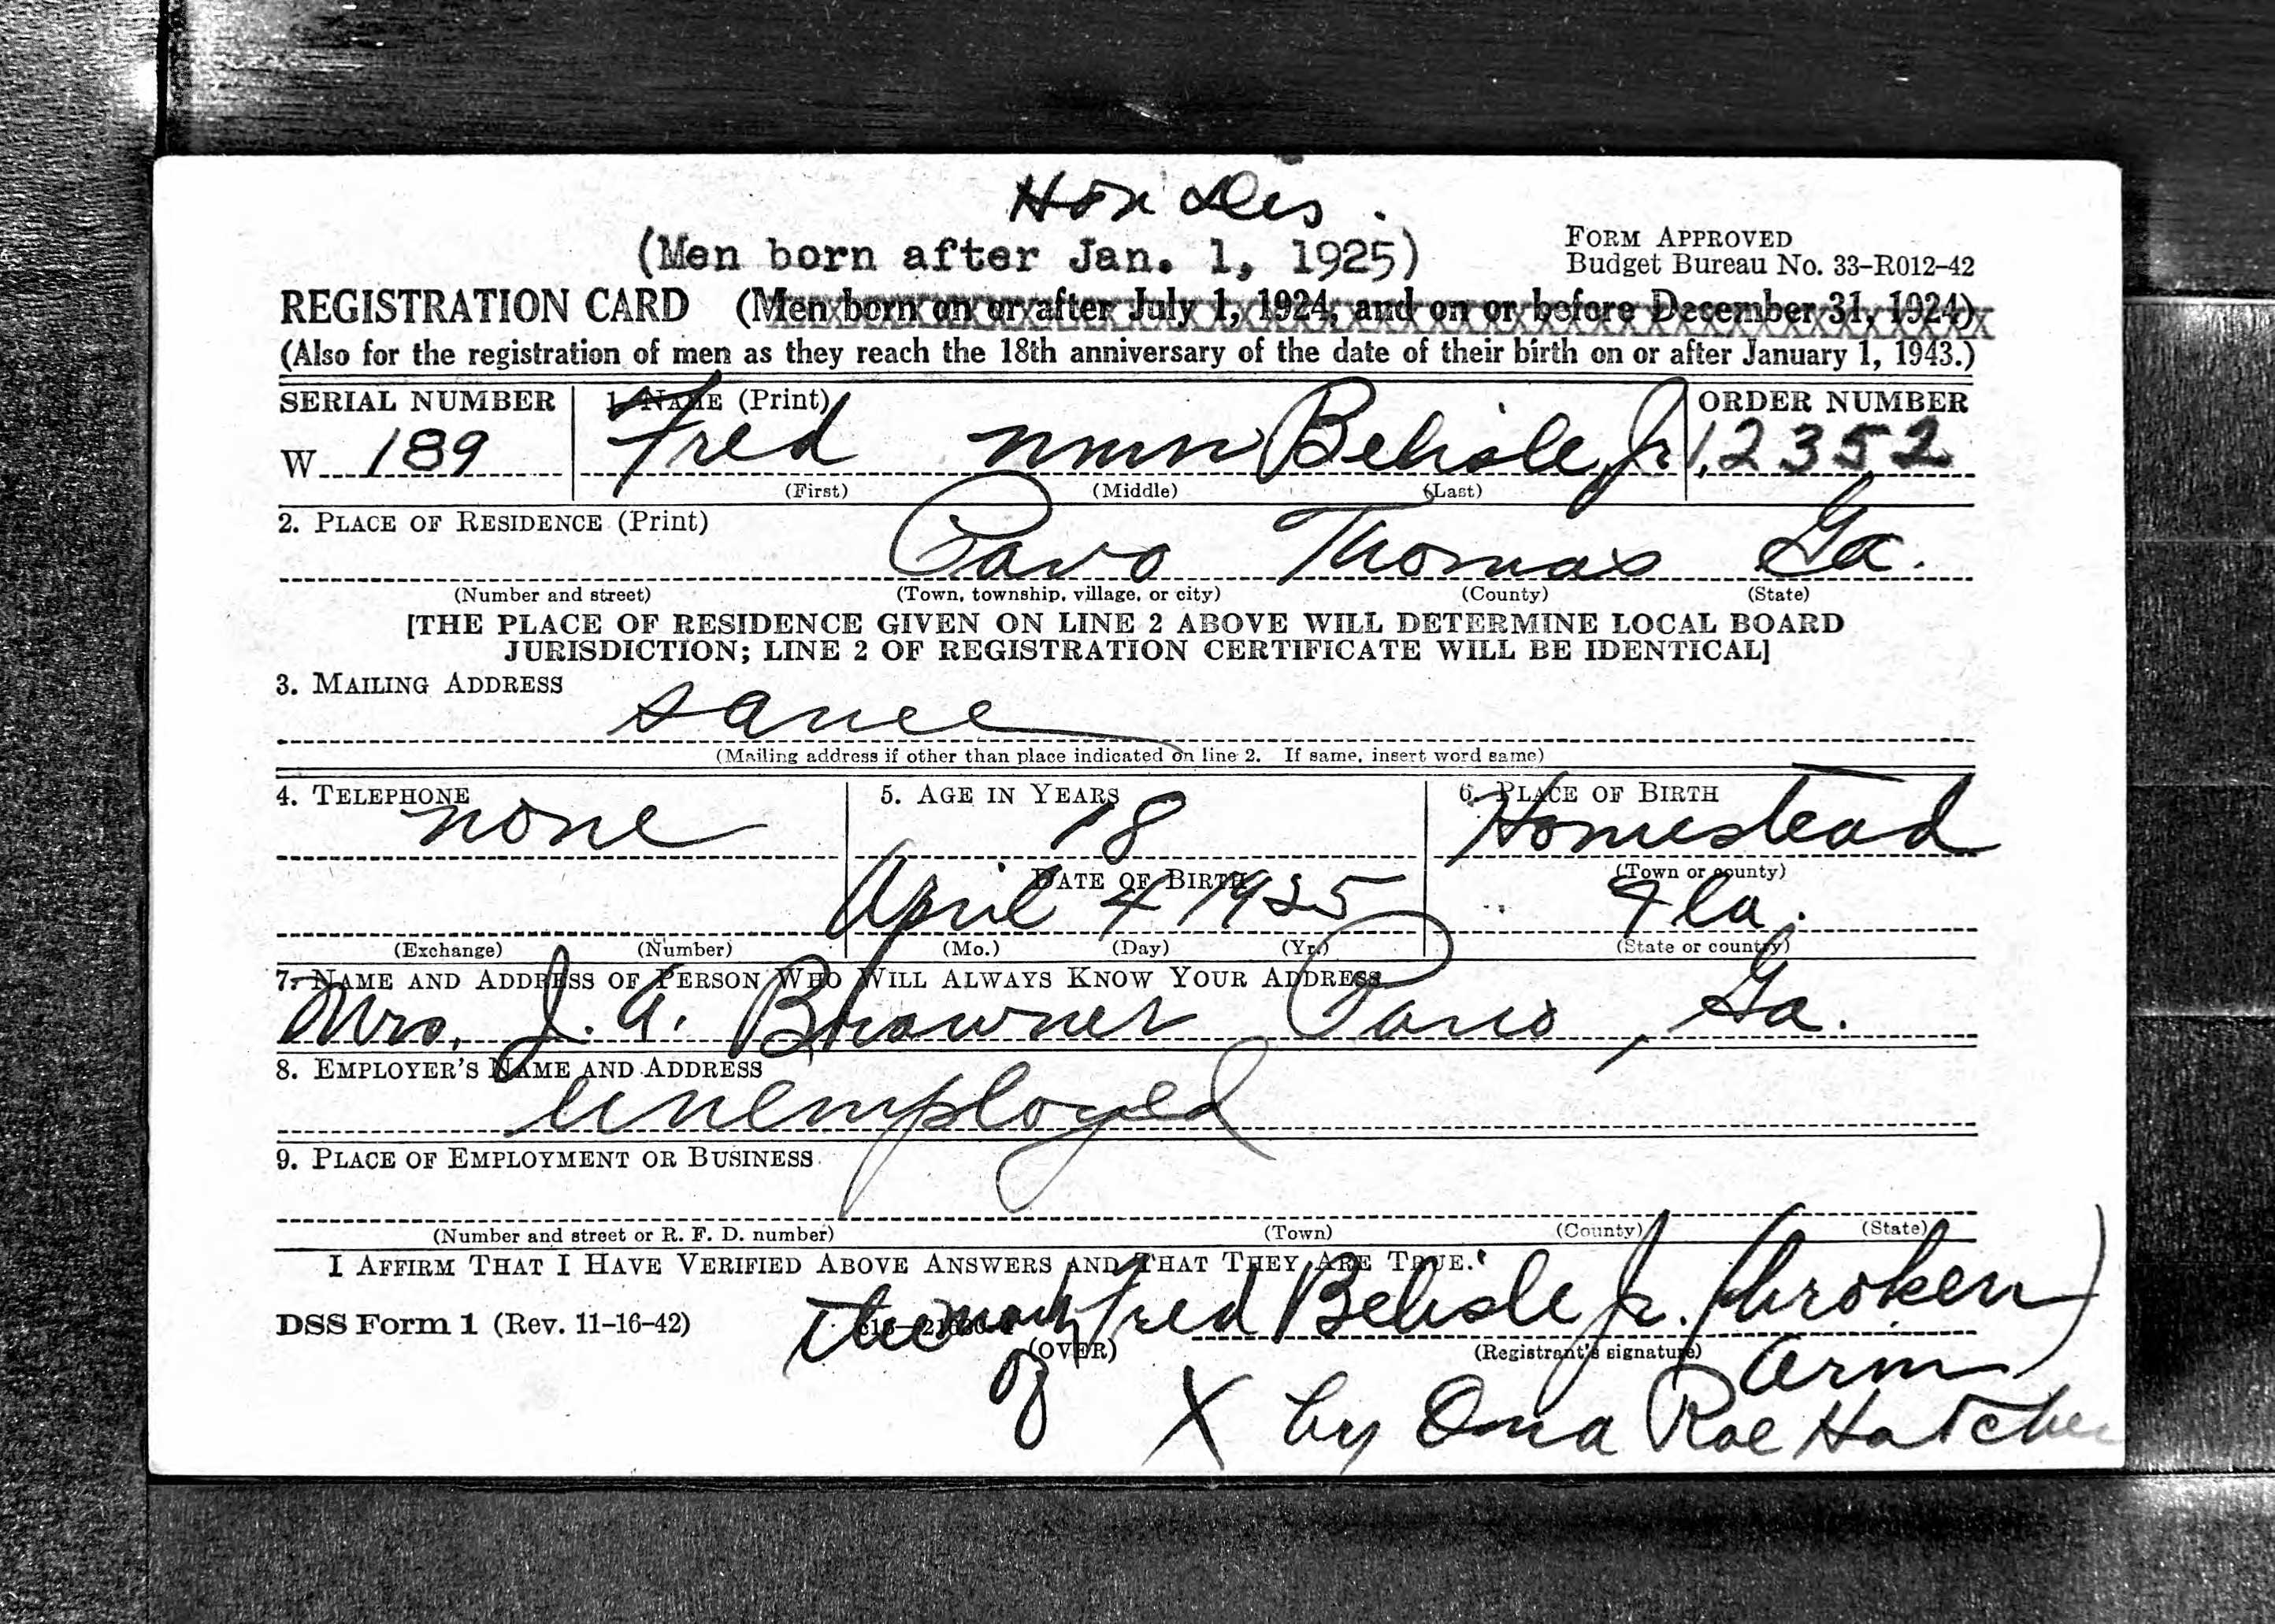 Hon Dis.
(Men born after Jan. 1, 1925)
FORM APPROVED
Budget Bureau No. 33-R012-42
REGISTRATION CARD (Men born on or after July 1, 1924, and on or before December 31, 1924)
(Also for the registration of men as they reach the 18th anniversary of the date of their birth on or after January 1, 1943.)
SERIAL NUMBER 1. NAME (Print) ORDER NUMBER
W 189 Fred nmn Belisle Jr. 12352
(First) (Middle) (Last)
2. PLACE OF RESIDENCE (Print)
Pavo Thomas Ga.
(Number and street) (Town, township, village, or city) (County) (State)
[THE PLACE OF RESIDENCE GIVEN ON LINE 2 ABOVE WILL DETERMINE LOCAL BOARD
JURISDICTION; LINE 2 OF REGISTRATION CERTIFICATE WILL BE IDENTICAL]
3. MAILING ADDRESS
same
(Mailing address if other than place indicated on line 2. If same, insert word same)
4. TELEPHONE 5. AGE IN YEARS 6. PLACE OF BIRTH
none 18 Homestead
DATE OF BIRTH (Town or county)
April 4 1925 Fla.
(Exchange) (Number) (Mo.) (Day) (Yr.) (State or country)
7. NAME AND ADDRESS OF PERSON WHO WILL ALWAYS KNOW YOUR ADDRESS
Mrs. J. A. Pavo, Ga.
8. EMPLOYER'S NAME AND ADDRESS
unemployed
9. PLACE OF EMPLOYMENT OR BUSINESS
(Number and street or R. F. D. number) (Town) (County) (State)
I AFFIRM THAT I HAVE VERIFIED ABOVE ANSWERS AND THAT THEY ARE TRUE.
DSS Form 1 (Rev. 11-16-42) the mark Fred Belisle Jr. (broken
(OVER) (Registrant's signature)
of arm)
X by Oma Rae Hatcher